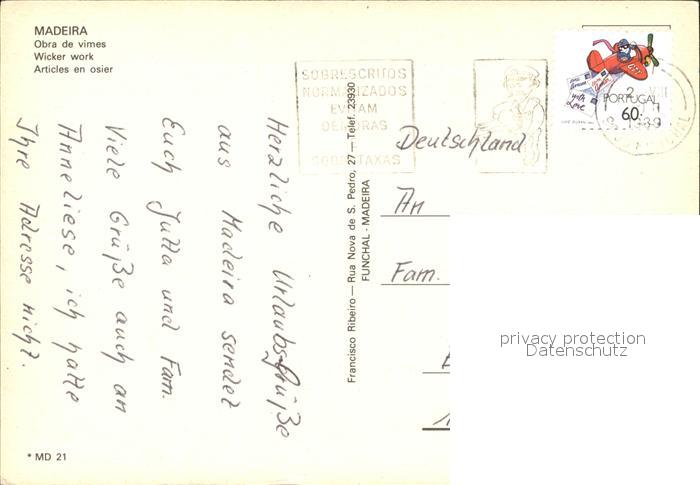 MADEIRA
Obra de vimes
Wicker work
Articles en osier
SOBRESCRITOS
NORMALIZADOS
EVITAM
DEMORAS
SOBRETAXAS
PORTUGAL
60.
with Love
Herzliche Urlaubsgrüße
aus Madeira sendet
Euch Jutta und Fam.
Viele Grüße auch an
Anneliese, ich hatte
Ihre Adresse nicht.
Francisco Ribeiro — Rua Nova de S. Pedro, 27 — Telef. 23930
FUNCHAL - MADEIRA
Deutschland
An
Fam.
privacy protection
Datenschutz
* MD 21